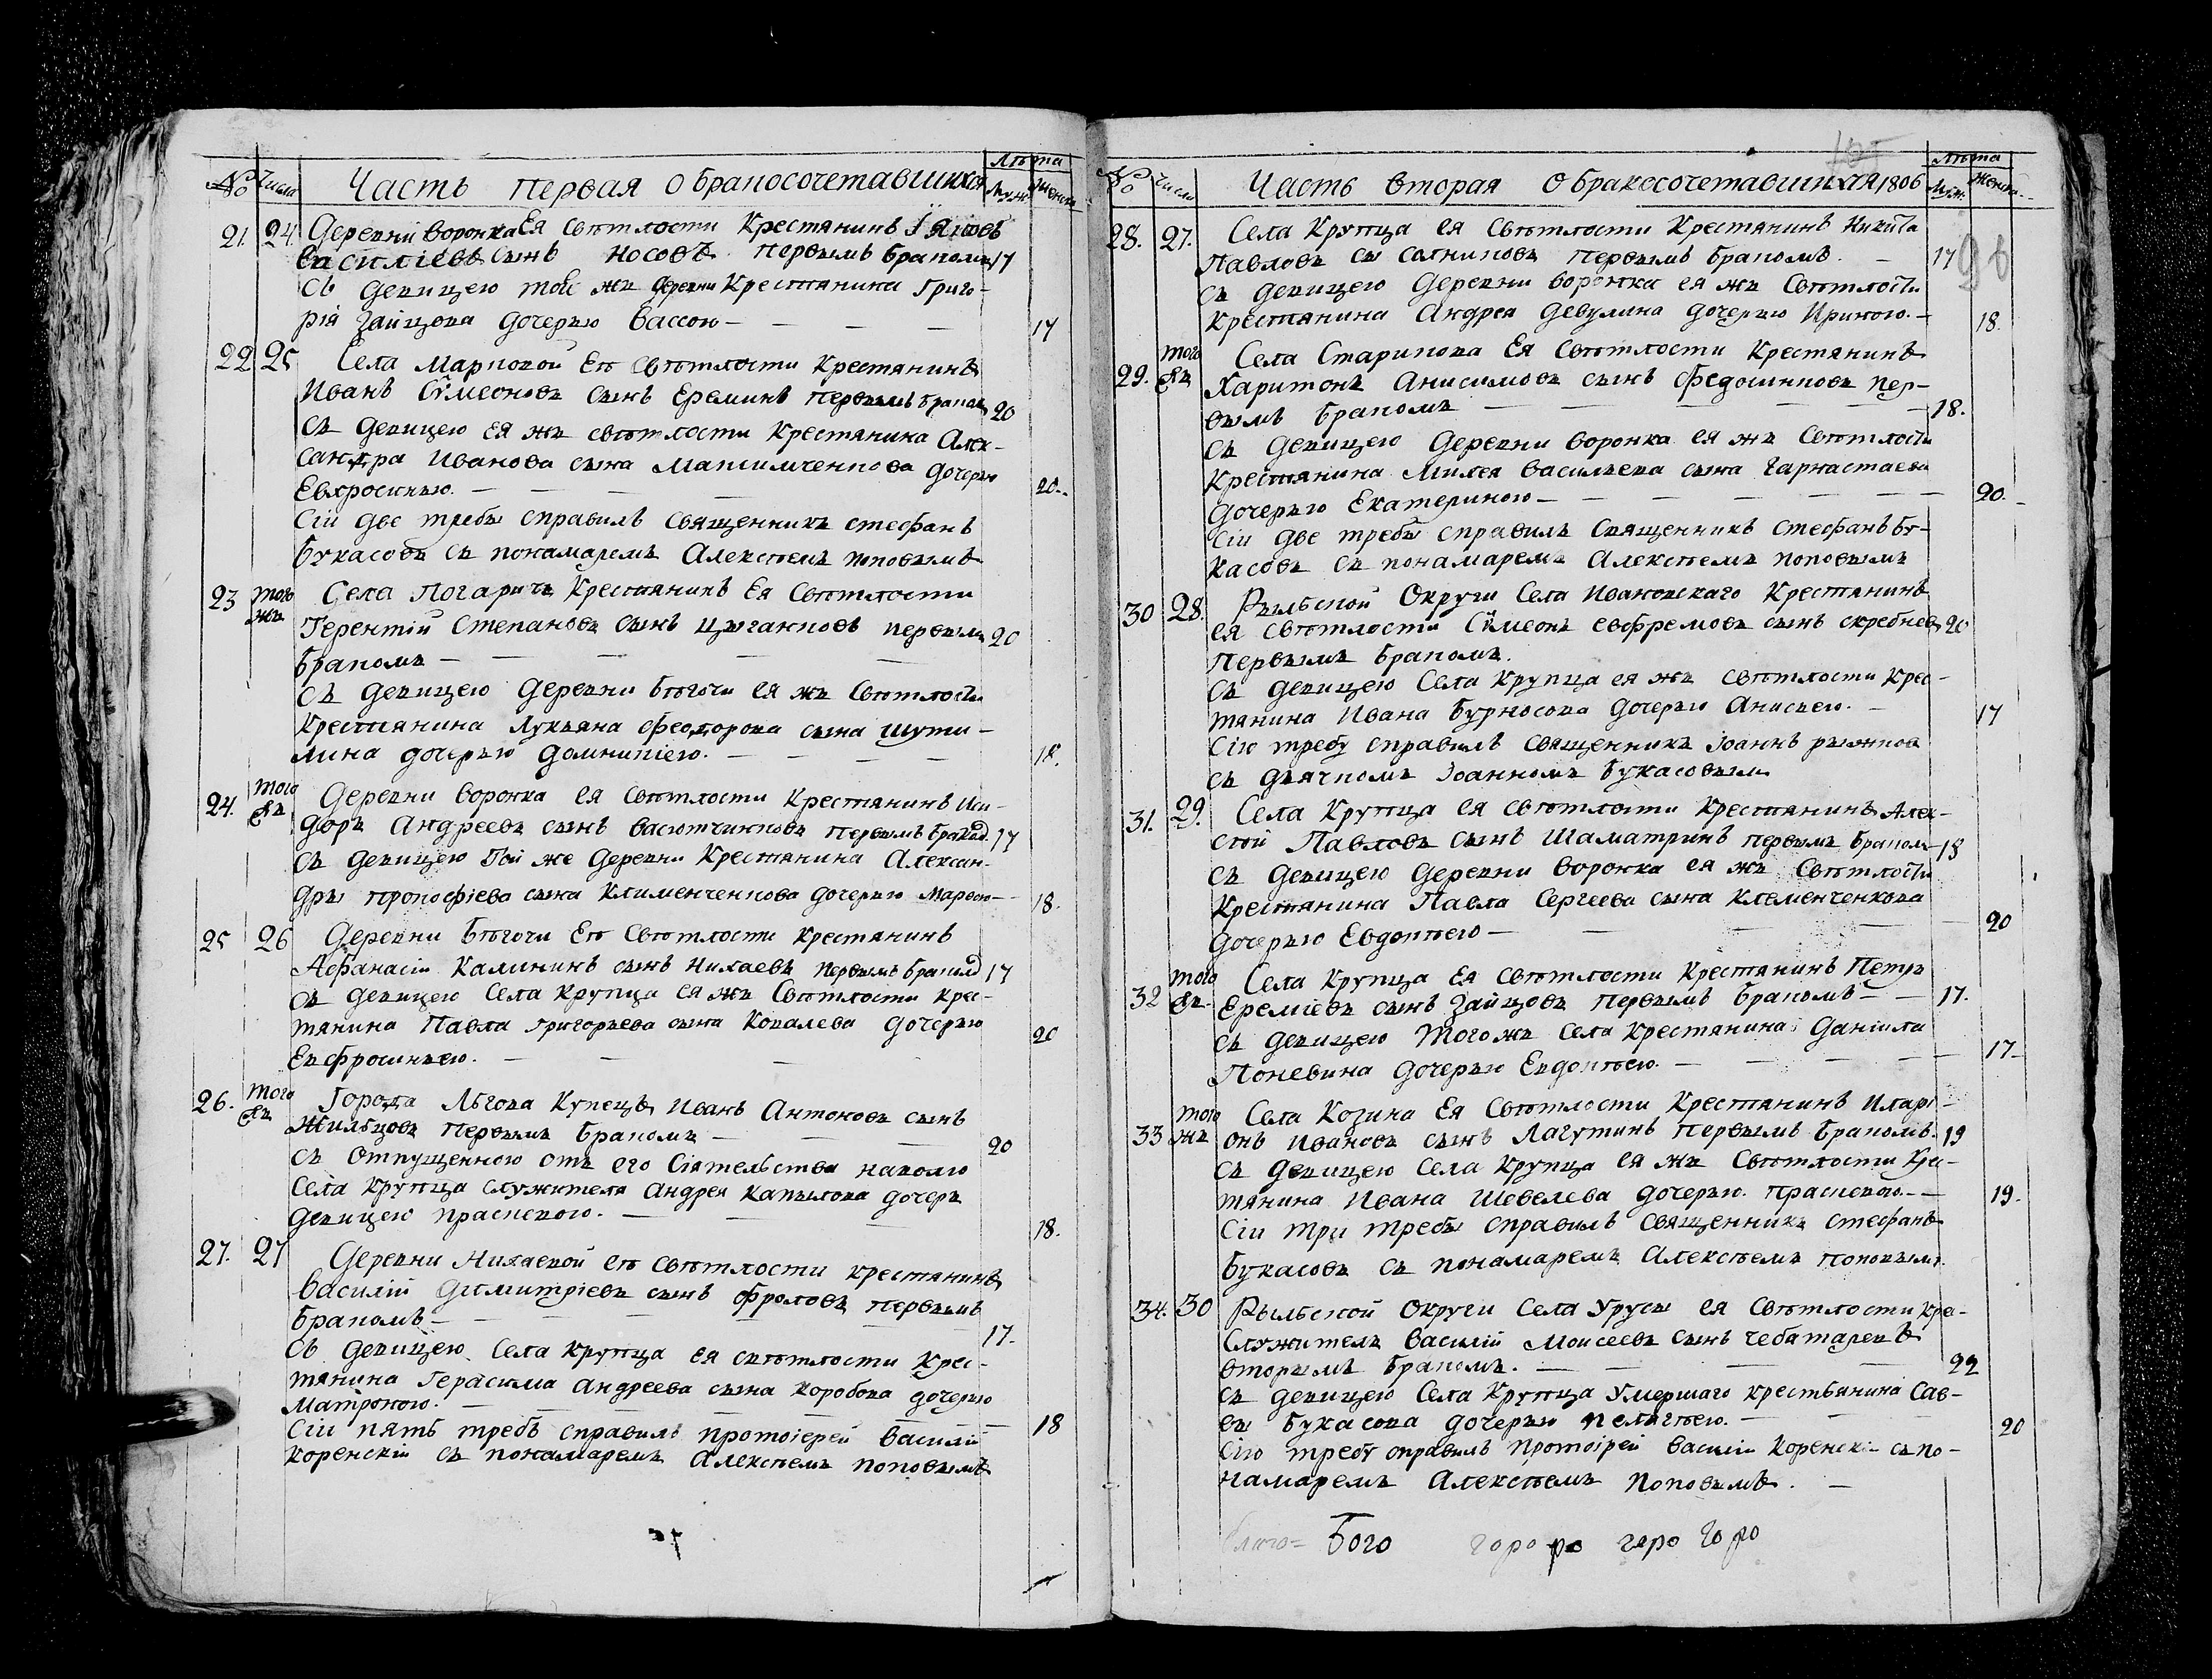 № Числа Часть первая о бракосочетавшихся Лѣта Муж. Женска
21. 24. Деревни Воронка Ея Свѣтлости Крестянинъ Іяковъ
Василіевъ сынъ Носовъ первымъ бракомъ 17
Съ девицею той жъ деревни Крестянина Григо-
рія Зайцова дочерью Вассою — 17
22 25 Села Марковой Ея Свѣтлости Крестянинъ
Иванъ Сѵмеоновъ сынъ Ереминъ первымъ браком 20
съ девицею ея жъ свѣтлости Крестянина Алек-
сандра Иванова сына Максимченкова дочерью
Евхросиньею. — 20.
Сіи две требы справилъ Священникъ Стефанъ
Букасовъ съ понамаремъ Алексѣемъ Поповымъ
23 того жъ Села Погаричъ Крестянинъ Ея Свѣтлости
Терентій Степановъ сынъ Цыганковъ первымъ 20
бракомъ —
съ девицею деревни Бѣгочи ея жъ Свѣтлости
Крестянина Лукьяна Феодорова сына Шути-
лина дочерью Домникіею. — 18.
24. того жъ Деревни Воронка ея Свѣтлости Крестянинъ Иси-
доръ Андреевъ сынъ Васютчинковъ первымъ браком. 17
съ девицею той же деревни Крестянина Алексан-
дры Прокофіева сына Клименченкова дочерью Марѳою — 18.
25 26 Деревни Бѣгочи Ея Свѣтлости Крестянинъ
Афанасіи Калининъ сынъ Нихаевъ первымъ браком 17
съ девицею Села Крупца ея жъ Свѣтлости Крес-
тянина Павла Григорьева сына Ковалева дочерью 20
Евфросиньею. —
26. того жъ Города Льгова Купецъ Иванъ Антоновъ сынъ
Жильцовъ первымъ бракомъ — 20
съ отпущенною отъ его Сіятельства наволю
Села Крупца служителя Андрея Капылова дочерь
девицею Прасковою. — 18.
27. 27 Деревни Нихаевой ея свѣтлости крестянинъ
Василій Димитріевъ сынъ Фроловъ первымъ
бракомъ — 17.
Съ девицею Села Крупца ея свѣтлости Крес-
тянина Герасима Андреева сына Коробова дочерью
Матроною. — 18
Сіи пять требъ справилъ протоіерей Василій
Коренскій съ понамаремъ Алексѣемъ Поповымъ
№ Число Часть вторая о бракосочетавшихся 1806 Лѣта Муж. Женска.
28. 27. Села Крупца ея Свѣтлости Крестянинъ Никита
Павловъ сы Сотниковъ первымъ бракомъ. — 17
съ девицею деревни Воронка ея жъ Свѣтлости
Крестянина Андрея Девулина дочерью Ириною. — 18.
29. того жъ Села Старикова Ея Свѣтлости Крестянинъ
Харитонъ Анисимовъ сынъ Федосинковъ пер-
вымъ бракомъ — 18.
съ девицею деревни Воронка ея жъ Свѣтлости
Крестянина Михея Васильева сына Гарнастаева
дочерью Екатериною — 20.
Сіи две требы справилъ Священникъ Стефанъ Бу-
касовъ съ понамаремъ Алексѣемъ Поповымъ
30 28. Рыльской Округи Села Ивановскаго Крестянинъ
ея свѣтлости Сѵмеонъ Евфремовъ сынъ Скребнев 20
первымъ бракомъ.
съ девицею Села Крупца ея жъ свѣтлости Крес-
тянина Ивана Бурносова дочерью Анисьею. — 17
Сію требу справилъ Священникъ Іоаннъ Рыжков
съ дьячкомъ Іоанномъ Букасовым
31. 29. Села Крупца ея свѣтлости Крестянинъ Алек-
сѣй Павловъ сынъ Шаматринъ первымъ браком 18
съ девицею деревни Воронка ея жъ Свѣтлости
Крестянина Павла Сергеева сына Клеменченкова
дочерью Евдокѣею — 20
32 того жъ Села Крупца Ея Свѣтлости Крестянинъ Петръ
Ереміевъ сынъ Зайцовъ первымъ бракомъ — 17.
съ девицею того жъ Села Крестянина Даніила
Поневина дочерью Евдокѣею. — 17
33 того жъ Села Козина Ея Свѣтлости Крестянинъ Илари-
онъ Ивановъ сынъ Лагутинъ первымъ бракомъ 19
съ девицею Села Крупца ея жъ Свѣтлости Крес-
тянина Ивана Шевелева дочерью Прасковою. — 19.
Сіи три требы справилъ Священникъ Стефанъ
Букасовъ съ понамаремъ Алексѣемъ Поповымъ.
34. 30 Рыльской Округи Села Урусы ея Свѣтлости Кре-
Служитель Василій Моисеевъ сынъ Чебатаревъ
вторымъ бракомъ. — 22
съ девицею Села Крупца умершаго крестьянина Сав-
вы Букасова дочерью Пелагѣею. — 20
Сію требу справилъ Протоірей Василіи Коренскі съ по-
намаремъ Алексѣемъ Поповымъ. —
благо= Бого горо ро горо горо